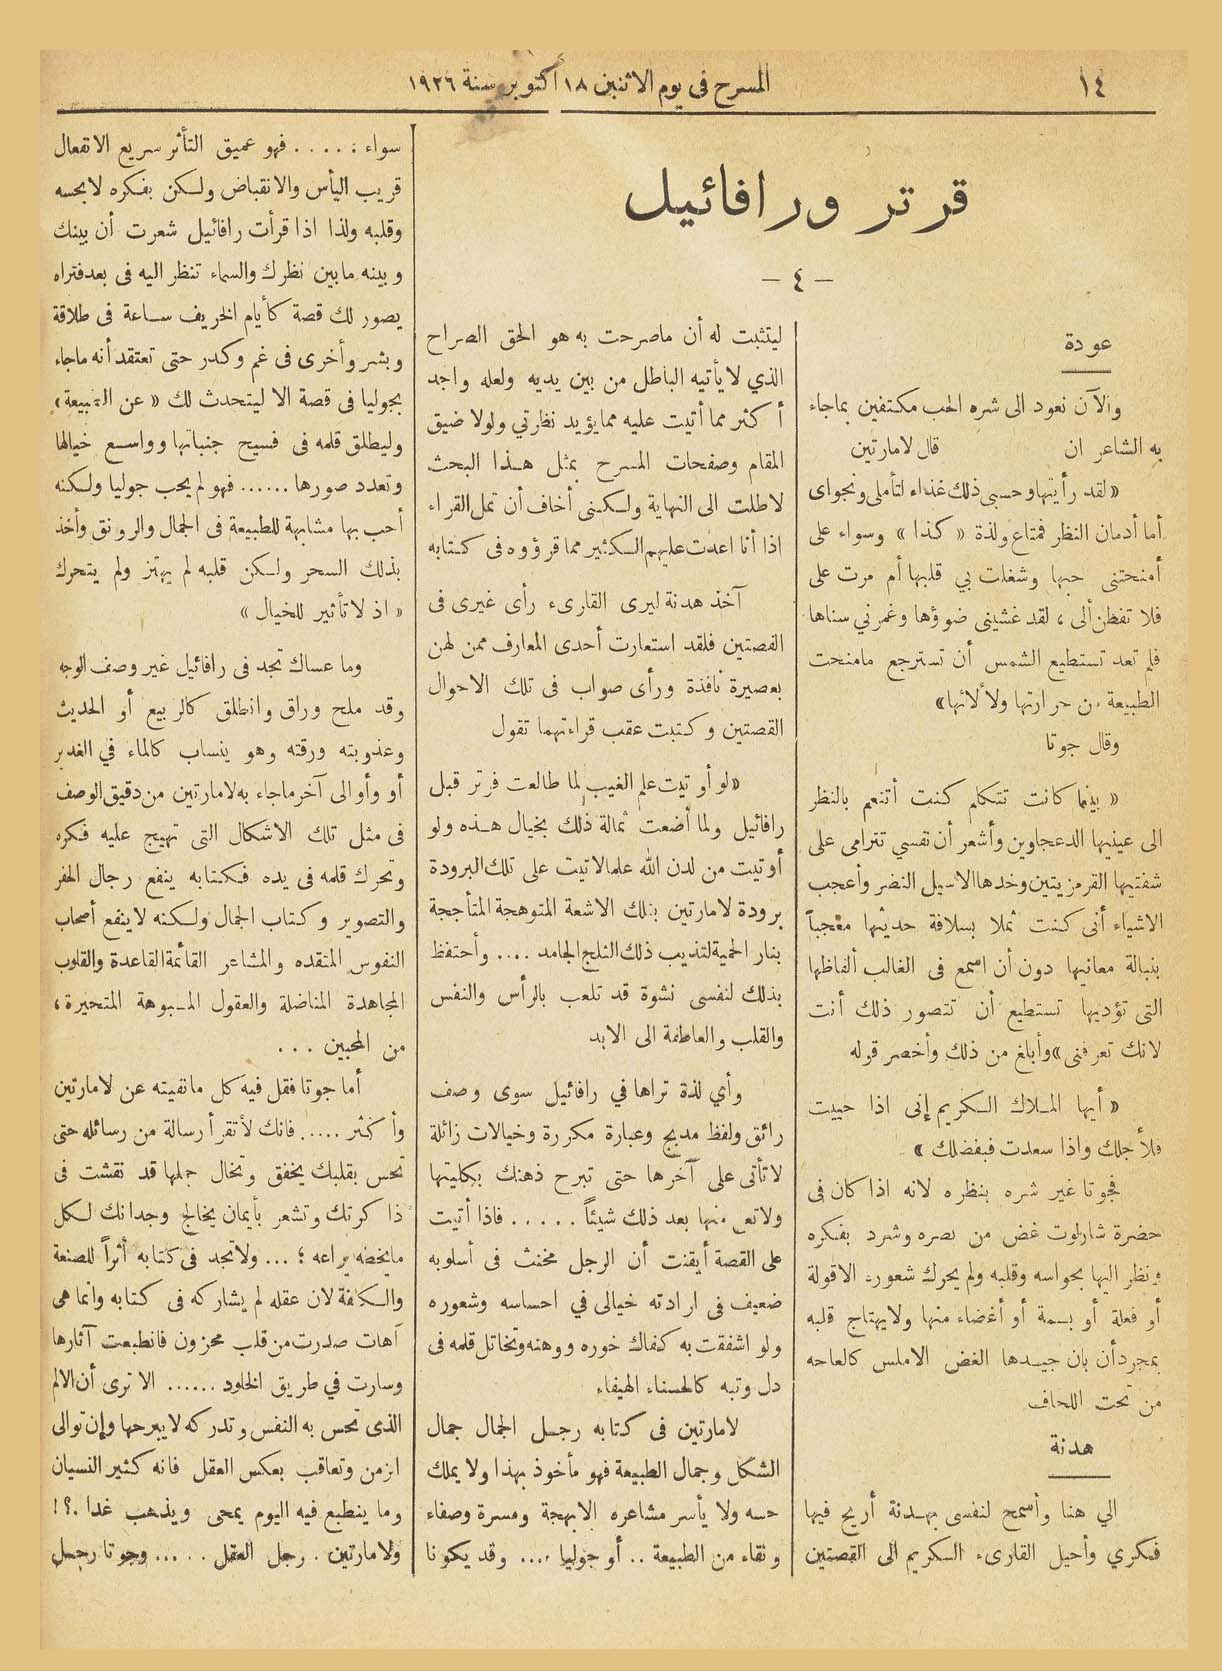 ١٤
المسرح فى يوم الاثنين ١٨ أكتوبر سنة ١٩٢٦
قرتر ورافائيل
— ٤ —
عودة
والآن نعود الى شره الحب مكتفين بماجاء
به الشاعر ان قال لامارتين
« لقد رأيتها وحسبى ذلك غذاء لتأملى ونجواى
أما أدمان النظر فمتاع ولذة « كذا » وسواء على
أمنحتنى حبها وشغلت بي قلبها أم مرت على
فلا تفطن ألى ، لقد غشينى ضوؤها وغمرني سناها
فلم تعد تستطيع الشمس أن تسترجع مامنحت
الطبيعة من حرارتها ولألائها»
وقال جوتا
« بينما كانت تتكلم كنت أتنعم بالنظر
الى عينيها الدعجاوين وأشعر أن نفسي تترامى على
شفتيها القرمزيتين وخدها الاسيل النضر وأعجب
الاشياء أنى كنت ثملا بسلافة حديثها معجباً
بنبالة معانيها دون أن اسمع فى الغالب ألفاظها
التى تؤديها تستطيع أن تتصور ذلك أنت
لانك تعرفنى» وأبلغ من ذلك وأخصر قوله
« أيها الملاك الكريم إنى اذا حييت
فلأجلك واذا سعدت فبفضلك »
فجوتا غير شره بنظره لانه اذا كان فى
حضرة شارلوت غض من بصره وشرد بفكره
ونظر اليها بحواسه وقلبه ولم يحرك شعوره الاقولة
أو فعلة أو بسمة أو أغضاء منها ولايهتاج قلبه
بمجرد أن بان جيدها الغض الاملس كالعاجه
من تحت اللحاف
هدنة
الي هنا وأسمح لنفسى بهدنة أريح فيها
فكري وأحيل القارىء الكريم الى القصتين
ليتثبت له أن ماصرحت به هو الحق الصراح
الذي لا يأتيه الباطل من بين يديه ولعله واجد
أكثر مما أتيت عليه مما يؤيد نظرتي ولولا ضيق
المقام وصفحات المسرح بمثل هذا البحث
لاطلت الى النهاية ولكنى أخاف أن تمل القراء
اذا أنا اعدت عليهم الكثير مما قرؤوه فى كتابه
آخذ هدنة ليرى القارىء رأى غيرى فى
القصتين فلقد استعارت أحدى المعارف ممن لهن
بعصيرة نافذة ورأى صواب فى تلك الاحوال
القصتين وكتبت عقب قراءتهما تقول
«لو أوتيت علم الغيب لما طالعت فرتر قبل
رافائيل ولما أضعت ثمالة ذلك بخيال هذه ولو
أوتيت من لدن الله علما لاتيت على تلك البرودة
برودة لامارتين بتلك الاشعة المتوهجة المتأججة
بنار الحمية لتذيب ذلك الثلج الجامد .... وأحتفظ
بذلك لنفسى نشوة قد تلعب بالرأس والنفس
والقلب والعاطفة الى الابد
وأي لذة تراها في رافائيل سوى وصف
رائق ولفظ مدبج وعبارة مكررة وخيالات زائلة
لا تأتى على آخرها حتى تبرح ذهنك بكليتها
ولا تعى منها بعد ذلك شيئاً ..... فاذا أتيت
على القصة أيقنت أن الرجل مخنث فى أسلوبه
ضعيف فى ارادته خيالى في احساسه وشعوره
ولو اشفقت به كفاك خوره ووهنه وتخاتل قلمه فى
دل وتيه كالحسناء الهيفاء
لامارتين فى كتابه رجل الجمال جمال
الشكل وجمال الطبيعة فهو مأخوذ بهذا ولا يملك
حسه ولا يأسر مشاعره الا بهجة ومسرة وصفاء
ونقاء من الطبيعة .. أو جوليا .... وقد يكونا
سواء ..... فهو عميق التأثر سريع الانفعال
قريب اليأس والانقباض ولكن بفكره لابحسه
وقلبه ولذا اذا قرأت رافائيل شعرت أن بينك
وبينه مابين نظرك والسماء تنظر اليه فى بعد فتراه
يصور لك قصة كأيام الخريف ساعة فى طلاقة
وبشر وأخرى فى غم وكدر حتى تعتقد أنه ماجاء
بجوليا فى قصة الا ليتحدث لك « عن الطبيعة »
وليطلق قلمه فى فسيح جنباتها وواسع خيالها
وتعدد صورها ...... فهو لم يحب جوليا ولكنه
أحب بها مشابهة للطبيعة فى الجمال والرونق وأخذ
بذلك السحر ولكن قلبه لم يهتز ولم يتحرك
« اذ لا تأثير للخيال »
وما عساك تجد فى رافائيل غير وصف الوجه
وقد ملح وراق وانطلق كالربيع أو الحديث
وعذوبته ورقته وهو ينساب كالماء في الغدير
أو وأوالى آخر ماجاء به لامارتين من دقيق الوصف
فى مثل تلك الاشكال التى تهيج عليه فكره
وتحرك قلمه فى يده فكتابه ينفع رجال الحفر
والتصوير وكتاب الجمال ولكنه لا ينفع أصحاب
النفوس المتقده والمشاعر القائمة القاعدة والقلوب
المجاهدة المناضلة والعقول المشبوهة المتحيرة ،
من المحبين ...
أما جوتا فقل فيه كل مانفيته عن لامارتين
وأكثر ..... فانك لأتقرأ رسالة من رسائله حتى
تحس بقلبك يخفق وتخال جملها قد نقشت فى
ذاكرتك وتشعر بأيمان يخالج وجدانك لكل
مايخطه يراعه ؛ ... ولاتجد فى كتابه أثراً للصنعة
والكلفة لان عقله لم يشاركه فى كتابه وانما هى
آهات صدرت من قلب محزون فانطبعت آثارها
وسارت في طريق الخلود ...... الا ترى أن الالم
الذى تحس به النفس وتدركه لا يبرحها وإن توالى
الزمن وتعاقب بعكس العقل فانه كثير النسيان
وما ينطبع فيه اليوم يمحى ويذهب غدا .؟ !
ولامارتين . رجل العقل ..... وجوتا رجل